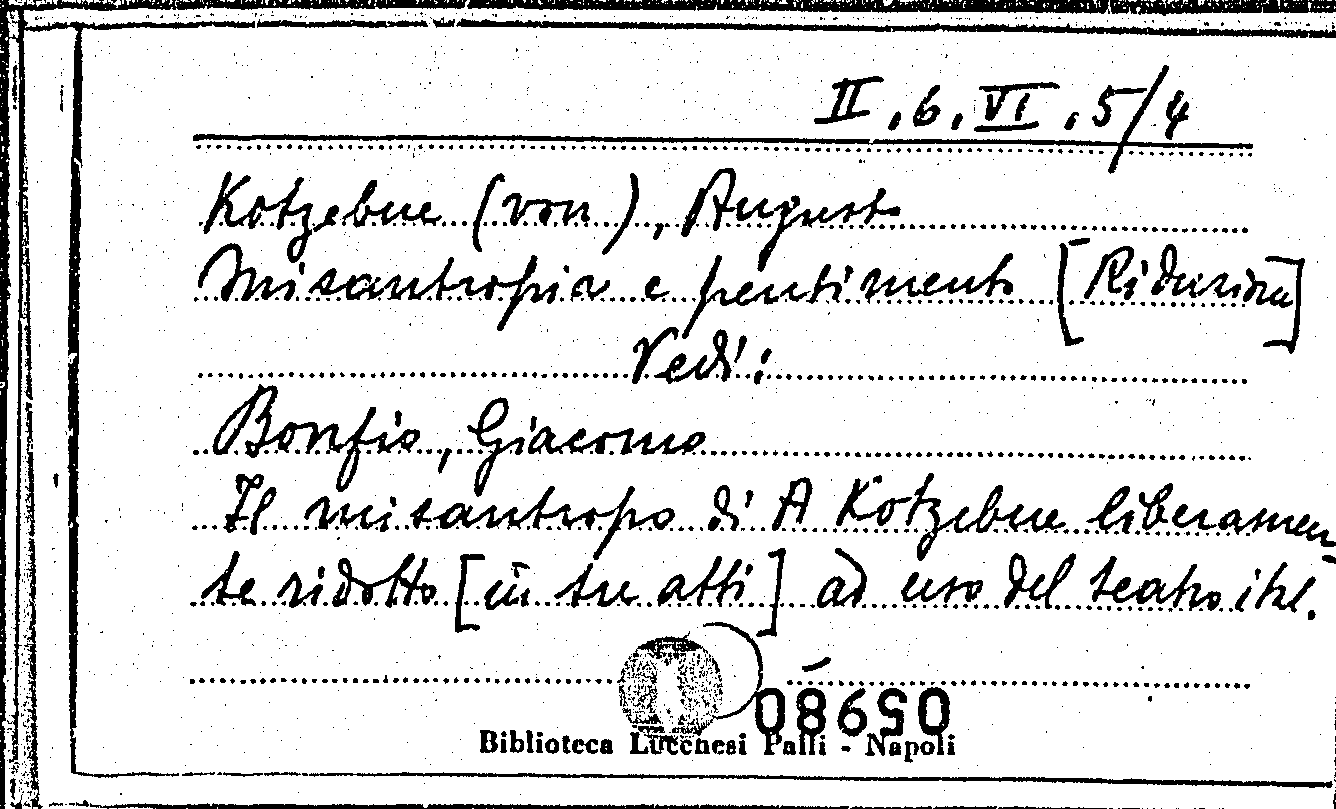 II.6.VI.5/4
Kotzebue (von), Augusto
Misantropia e pentimento [Riduzione]
Vedi:
Bonfio, Giacomo
Il misantropo di A Kotzebue liberamen-
te ridotto [in tre atti] ad uso del teatro ital.
Biblioteca Lucchesi Palli - Napoli